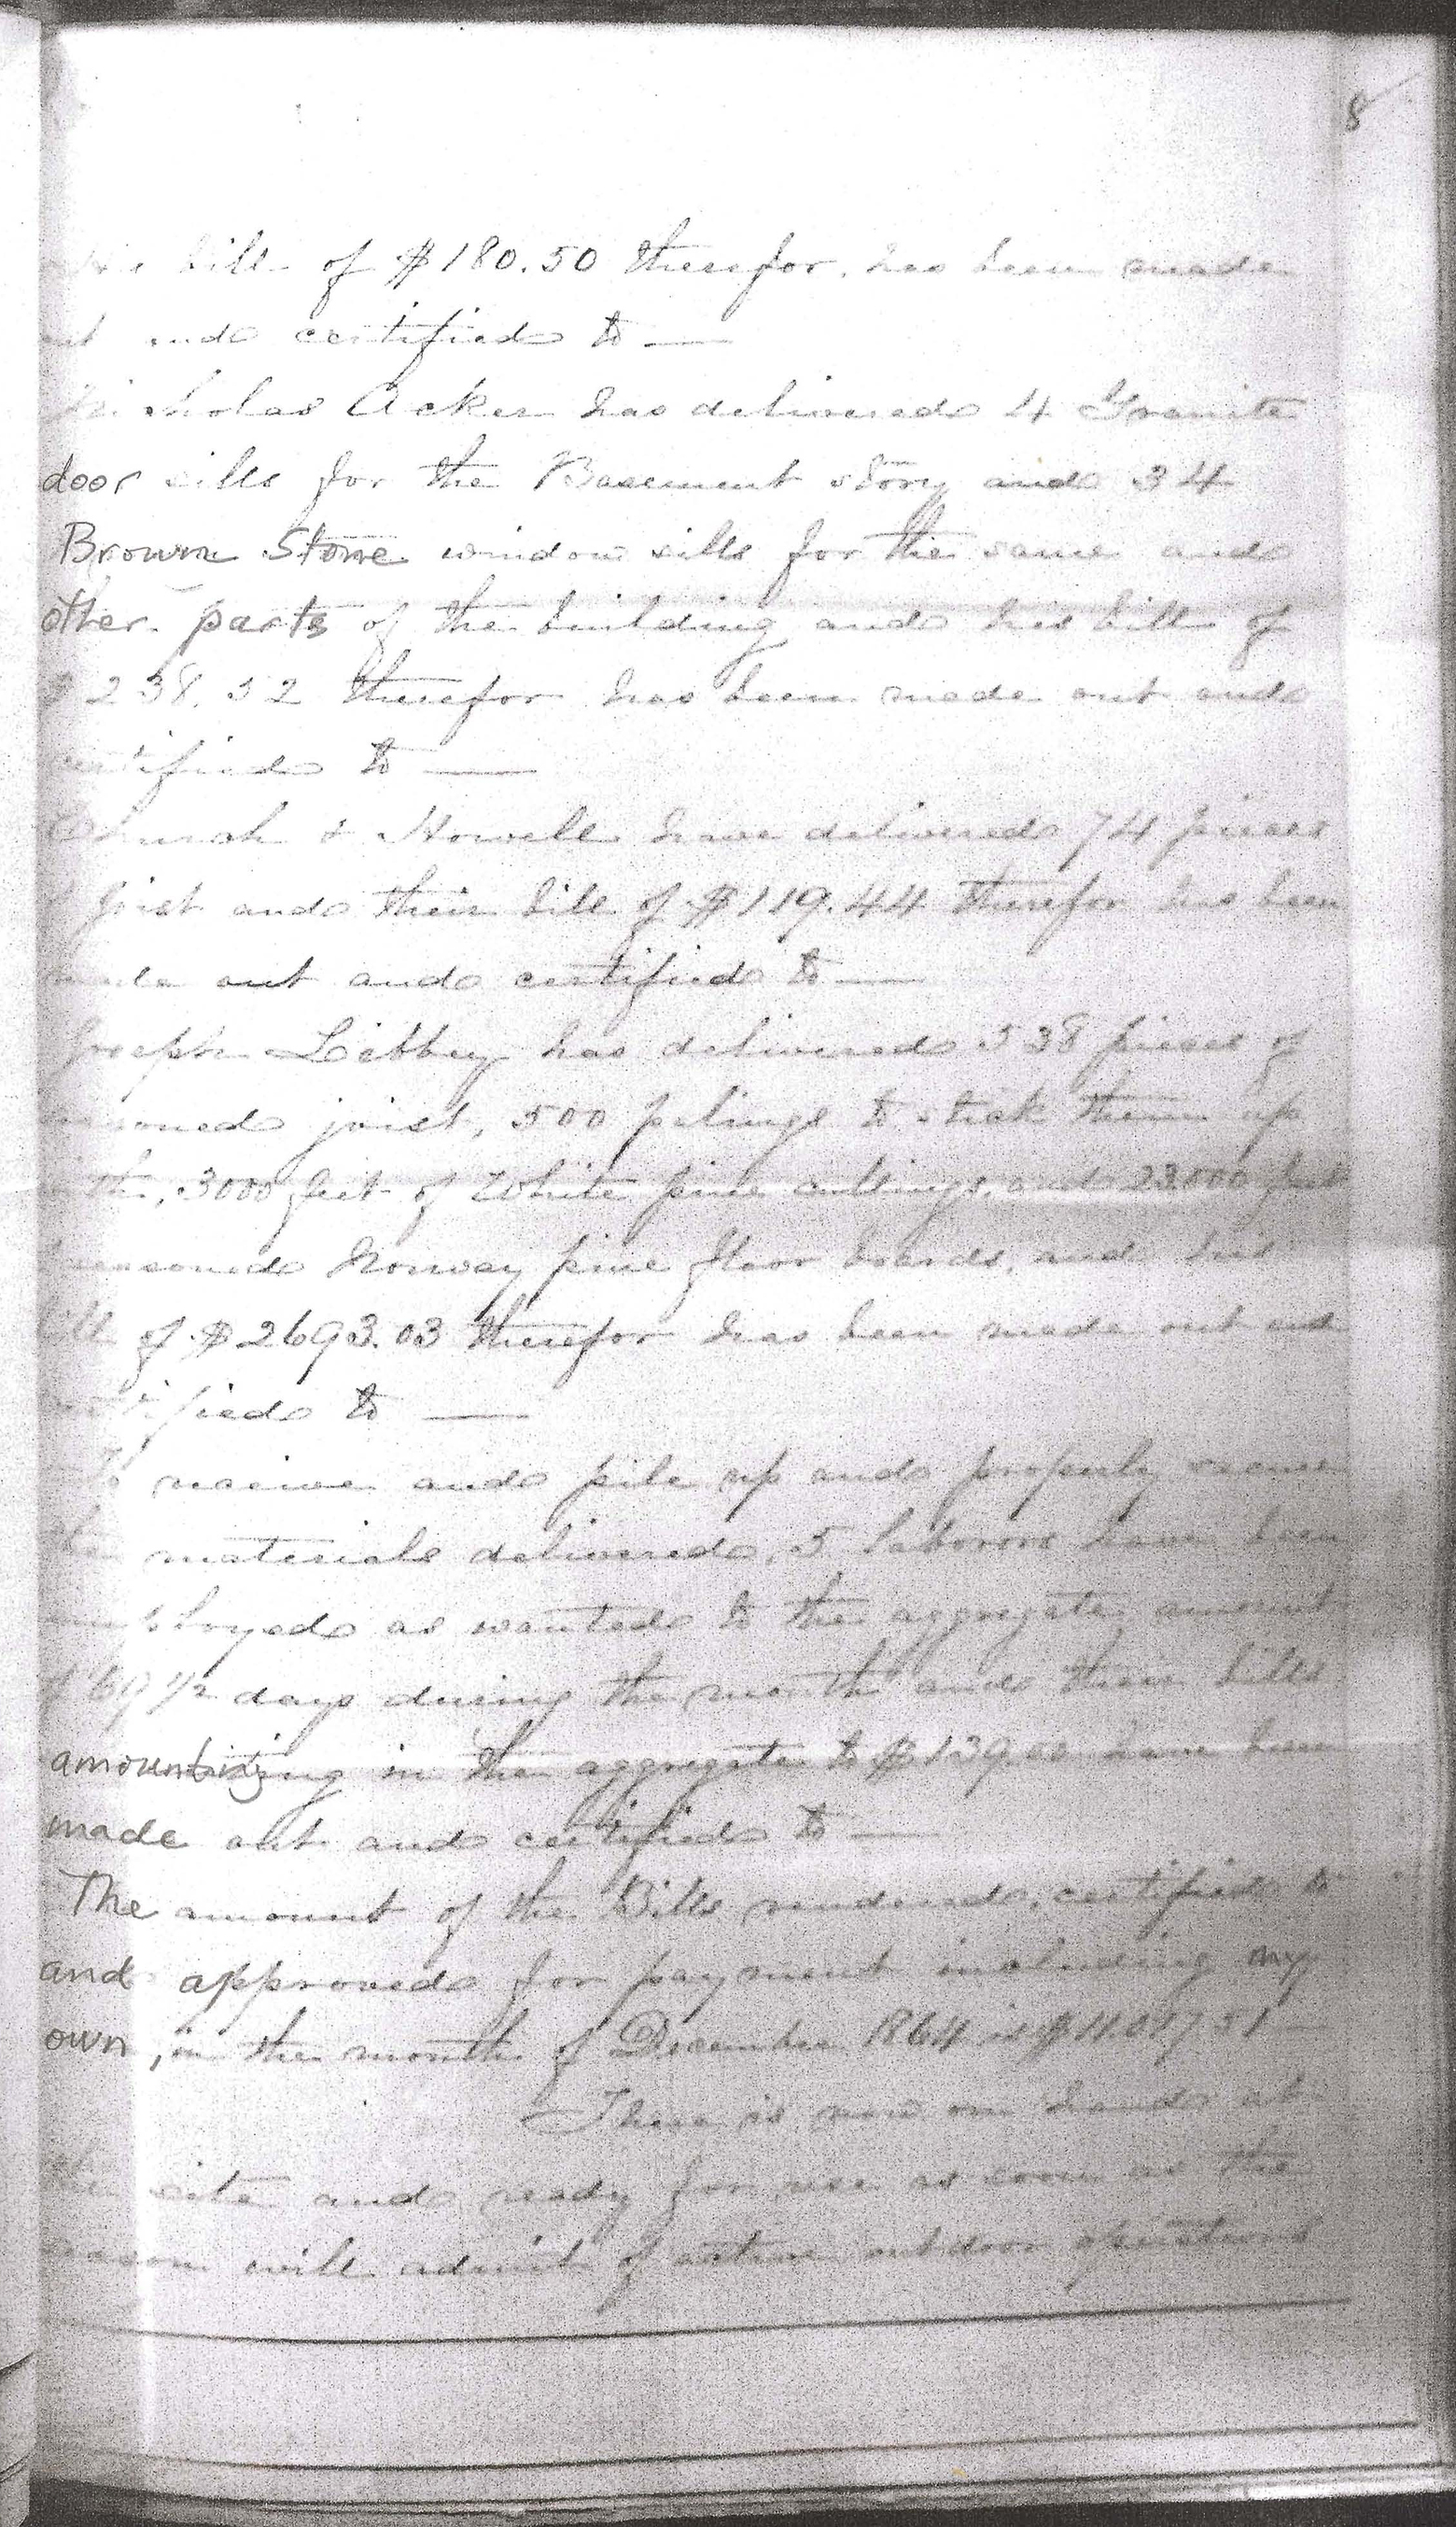 8
his bill of $180.50 therefor, has been made
out and certified to —
Nicholas Acker has delivered 4 Granite
door sills for the Basement story and 34
Brown Stone window sills for the same and
other parts of the building and his bill of
$238.52 therefor has been made out and
certified to —
Church & Howell have delivered 74 pieces
of joist and their bill of $119.44 therefor has been
made out and certified to —
Joseph Libbey has delivered 538 pieces of
seasoned joist, 500 palings to stick them up
with, 3000 feet of White pine cullings, and 23000 feet
seasoned Norway pine floor boards, and his
bill of $2693.03 therefor has been made out and
certified to —
To receive and pile up and properly secure
the materials delivered, 5 laborers have been
employed as wanted to the aggregate amount
of 69 1/2 days during the month and their bills
amounting in the aggregate to $139.00 have been
made out and certified to —
The amount of the Bills rendered, certified to
and approved for payment including my
own, in the month of December 1864 is
There is now on hand at
the site and ready for use as soon as the
season will admit of active outdoor operations